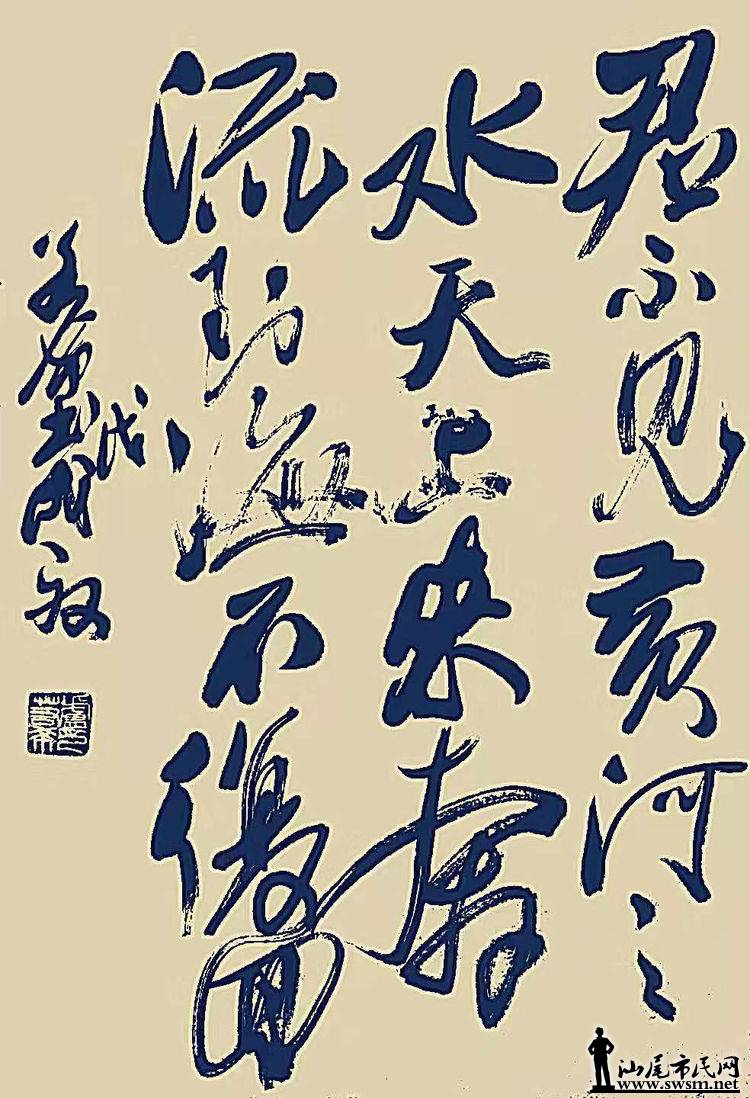 君不见黄河之
水天上来奔
流到海不復回
汕尾市民网
www.swsm.net